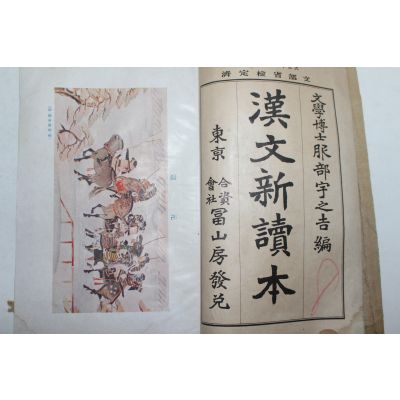 文部省檢定濟
文學博士 服部宇之吉編
漢文新讀本
東京 合資會社 冨山房發兌